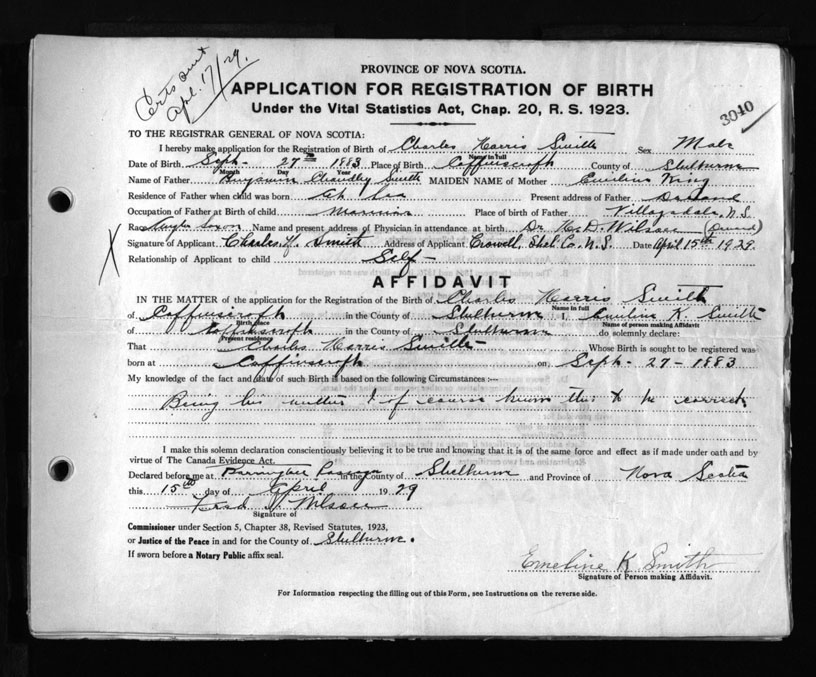 Certs sent
Apl. 17/29.
PROVINCE OF NOVA SCOTIA.
APPLICATION FOR REGISTRATION OF BIRTH
Under the Vital Statistics Act, Chap. 20, R. S. 1923.
3040
TO THE REGISTRAR GENERAL OF NOVA SCOTIA:
I hereby make application for the Registration of Birth of Charles Harris Smith Sex Male
Name in Full
Date of Birth Sept. 27th 1883 Place of Birth Coffinscroft County of Shelburne
Month Day Year
Name of Father Benjamin Chandley Smith MAIDEN NAME of Mother Emiline King
Residence of Father when child was born At Sea Present address of Father Dead
Occupation of Father at Birth of child Mariner Place of birth of Father Villagedale, N.S.
Race Anglo Saxon Name and present address of Physician in attendance at birth Dr. H. D. Wilson (Dead)
Signature of Applicant Charles H. Smith Address of Applicant Crowell, Shel. Co. N.S. Date April 15th 1929.
Relationship of Applicant to child Self
X
AFFIDAVIT
IN THE MATTER of the application for the Registration of the Birth of Charles Harris Smith
Name in full
of Coffinscroft in the County of Shelburne I, Emiline K. Smith
Birth place Name of person making Affidavit
of Coffinscroft in the County of Shelburne do solemnly declare:
Present residence
That Charles Harris Smith Whose Birth is sought to be registered was
born at Coffinscroft on Sept. 27 - 1883
My knowledge of the fact and date of such Birth is based on the following Circumstances :—
Being his mother I of course know this to be correct
I make this solemn declaration conscientiously believing it to be true and knowing that it is of the same force and effect as if made under oath and by
virtue of The Canada Evidence Act.
Declared before me at Barrington Passage in the County of Shelburne and Province of Nova Scotia
this 15th day of April 1929
Fred Wilson
Signature of
Commissioner under Section 5, Chapter 38, Revised Statutes, 1923,
or Justice of the Peace in and for the County of Shelburne.
If sworn before a Notary Public affix seal.
Emeline K Smith
Signature of Person making Affidavit.
For Information respecting the filling out of this Form, see Instructions on the reverse side.